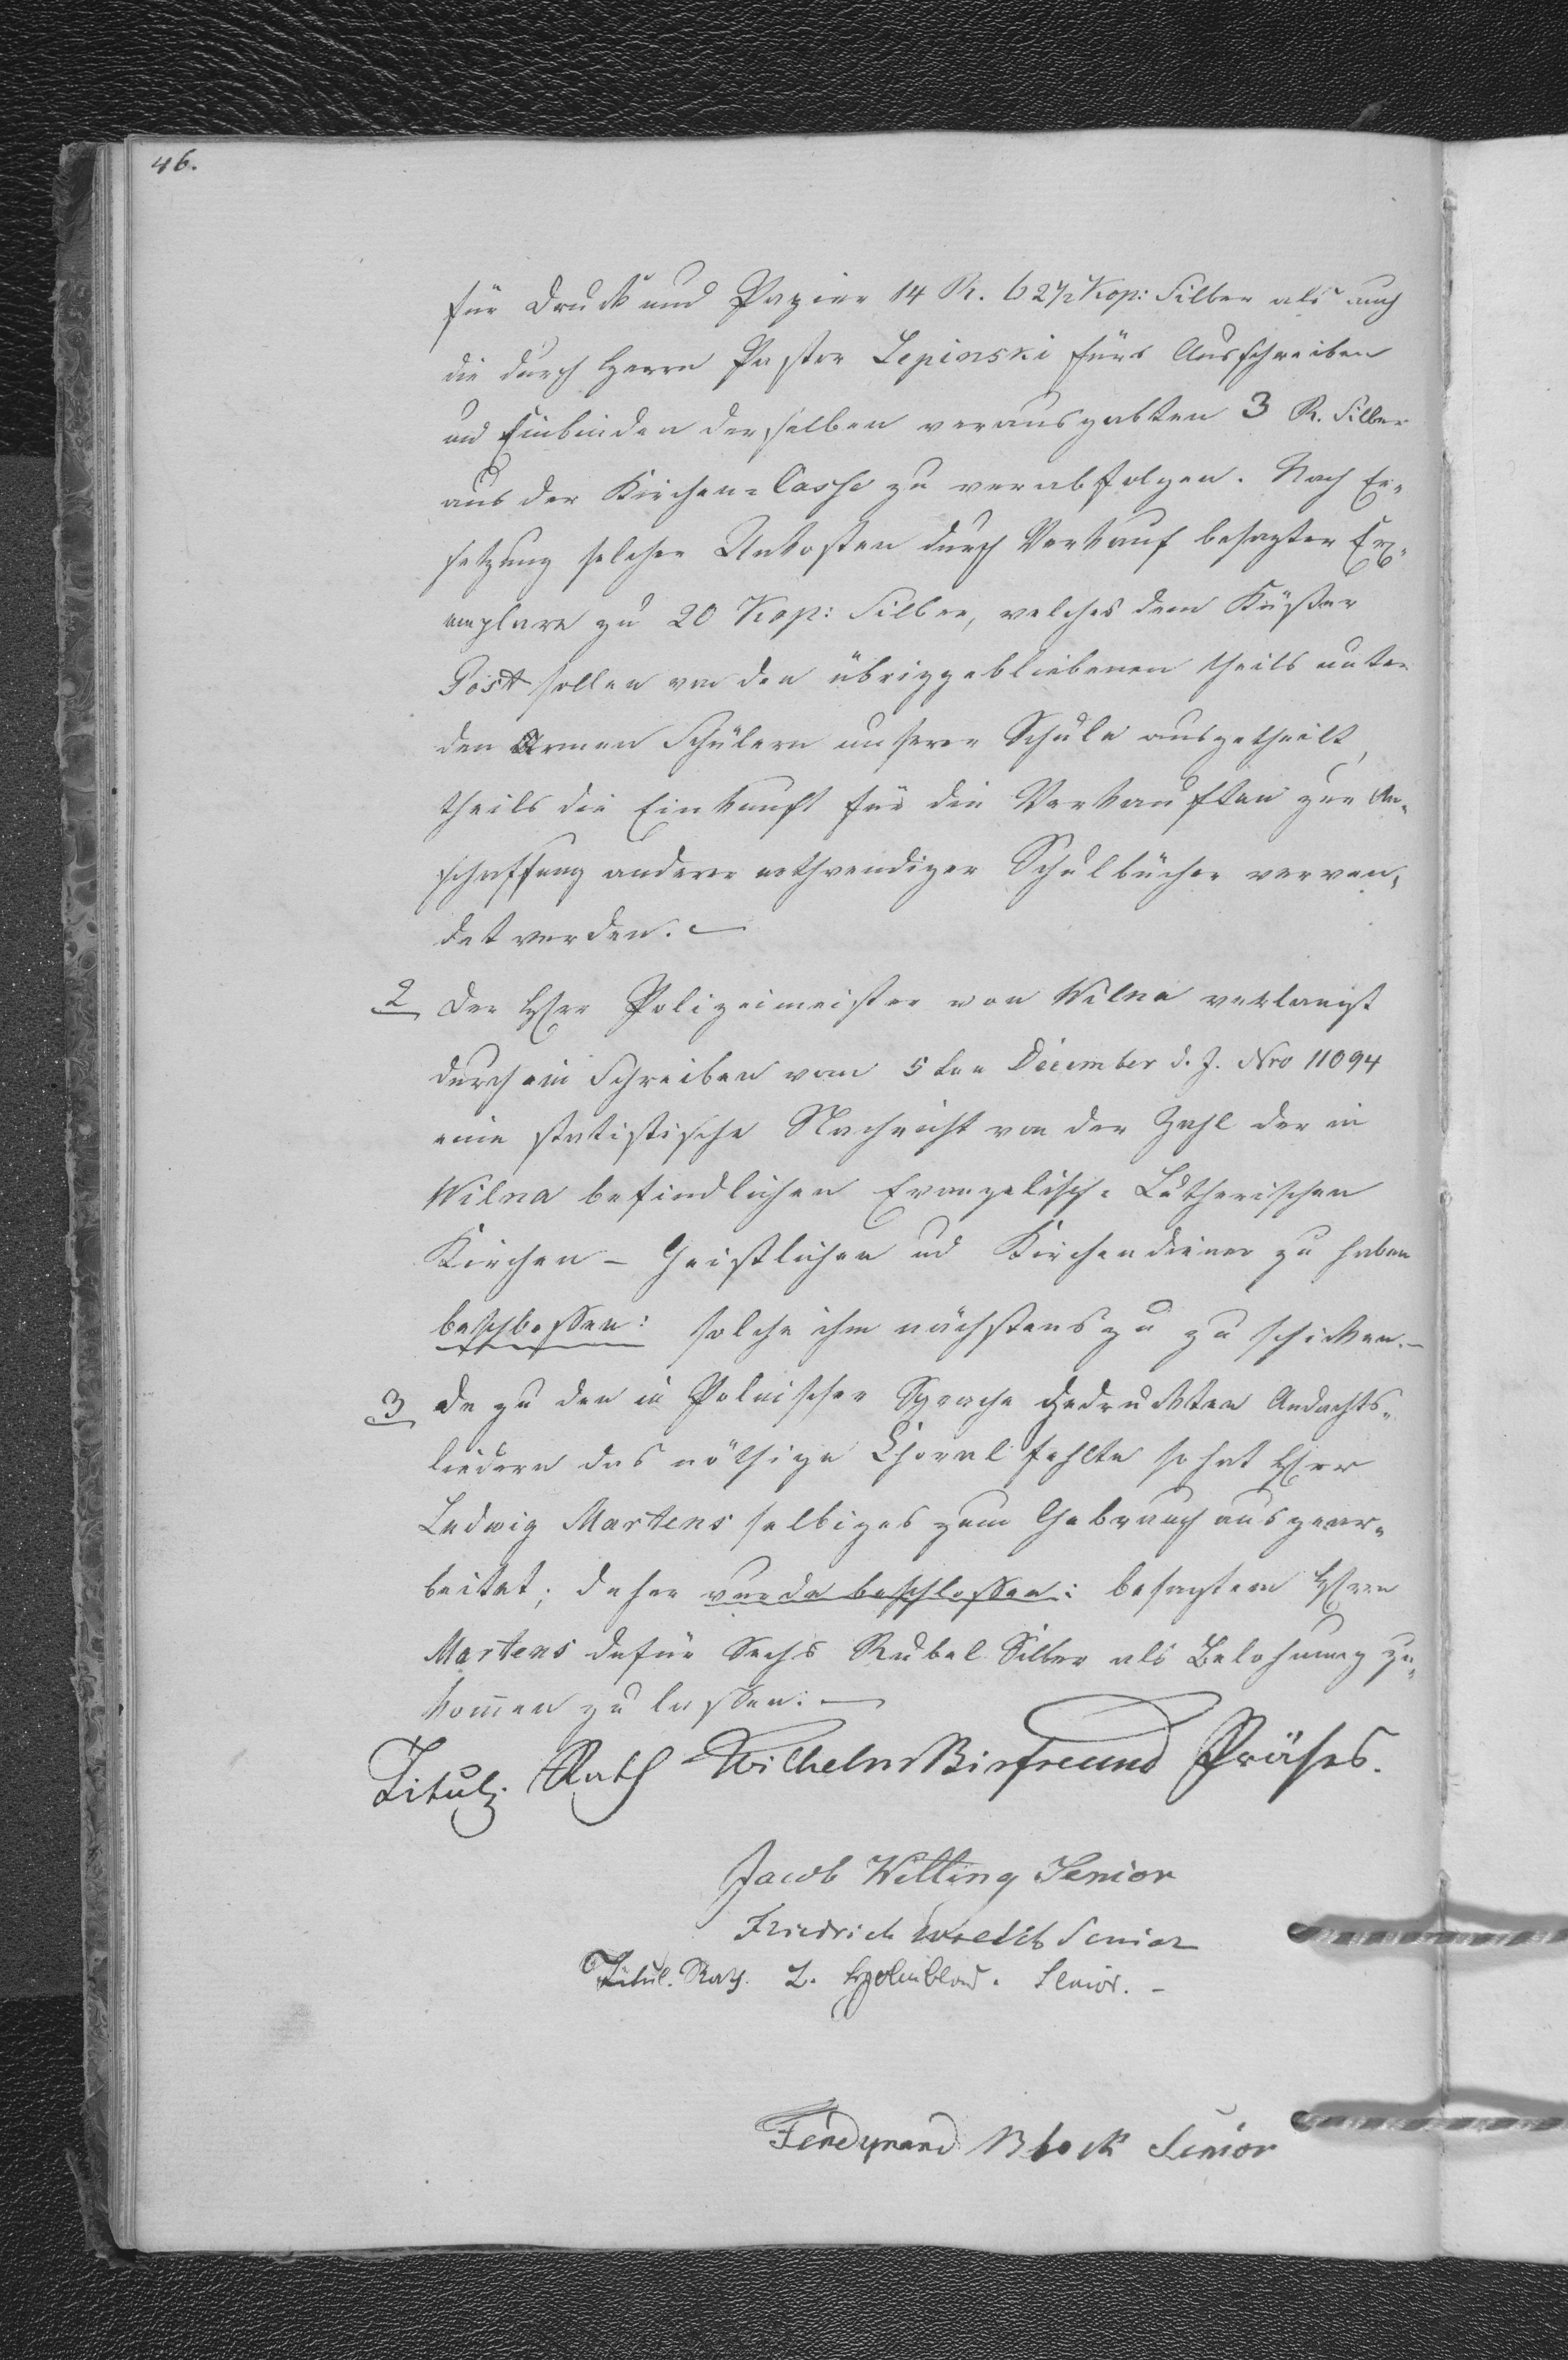 46.
für Druck und Papier 14 R. 62½ Kop: Silber als auch
die durch Herrn Pastor Lepinski fürs Ausschreiben
und Einbinden derselben verausgabten 3 R. Silber
aus der Kirchen-Casse zu verabfolgen. Nach Er-
setzung solcher Unkosten durch Verkauf besagter Ex-
emplare zu 20 Kop: Silber, welches dem Küster
Post sollen von den übriggebliebenen theils unter
den Armen Schülern unserer Schule ausgetheilt,
theils die Einkunft für die Verkauften zur An-
schaffung anderer nothwendiger Schulbücher verwen-
det werden. —
2 Der Herr Polizeimeister von Wilna verlangt
durch ein Schreiben vom 5ten December d. J. Nro 11094
eine statistische Nachricht von der Zahl der in
Wilna befindlichen Evangelisch-Lutherischen
Kirchen – Geistlichen und Kirchendiener zu haben
beschlossen: solche ihm nächstens zu zu schicken. –
3 Da zu den in Polnischer Sprache gedruckten Andachts-
liedern das nöthige Choral fehlte so hat Herr
Ludwig Martens selbiges zum Gebrauch ausgear-
beitet; daher wurde beschlossen: besagtem Herrn
Martens dafür Sechs Rubel Silber als Belohnung zu-
kom̅en zu lassen. —
Titul: Rath Wilhelm Birfreund Präses.
Jacob Witting Senior
Friedrich Senior
Titul. Rath. L. Senior. –
Ferdynand Block Senior